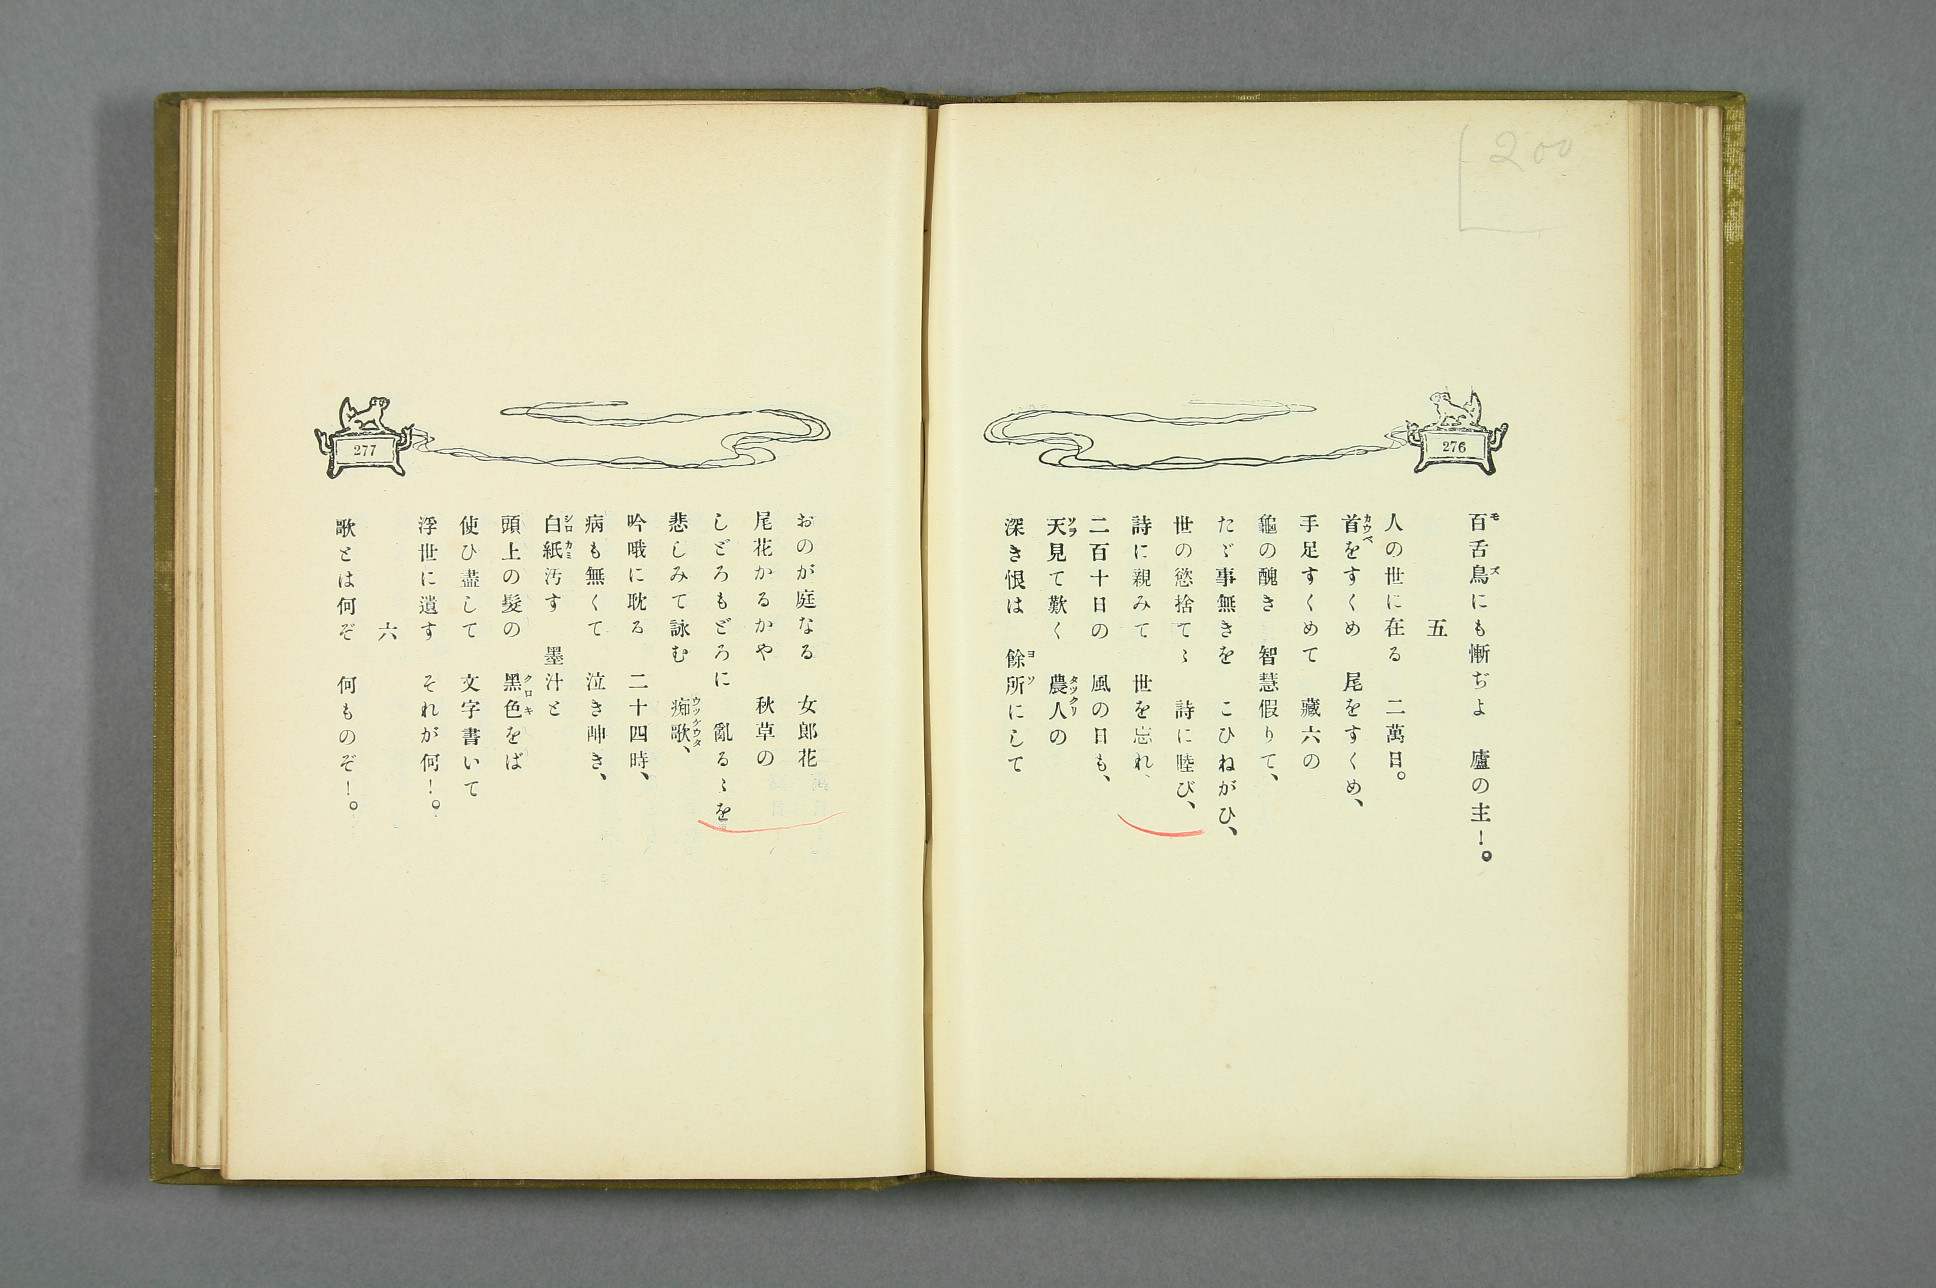 200
276
百舌鳥にも慚ぢよ　廬の主！。
五
人の世に在る　二萬日。
首をすくめ　尾をすくめ、
手足すくめて　藏六の
龜の醜き　智慧假りて、
たゞ事無きを　こひねがひ、
世の慾捨てゝ　詩に睦び、
詩に親みて　世を忘れ、
二百十日の　風の日も、
天見て歎く　農人の
深き恨は　餘所にして
277
おのが庭なる　女郎花
尾花かるかや　秋草の
しどろもどろに　亂るゝを
悲しみて詠む　痴歌、
吟哦に耽る　二十四時、
病も無くて　泣き呻き、
白紙汚す　墨汁と
頭上の髮の　黑色をば
使ひ盡して　文字書いて
浮世に遺す　それが何！。
六
歌とは何ぞ　何ものぞ！。